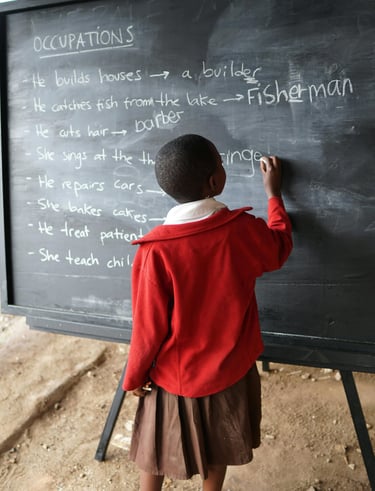 OCCUPATIONS
- He builds houses → a builder
- He catches fish from the lake → FisherMan
- He cuts hair → barber
- She sings at the
- He repairs cars
- She bakes cakes
- He treat patient
- She teach